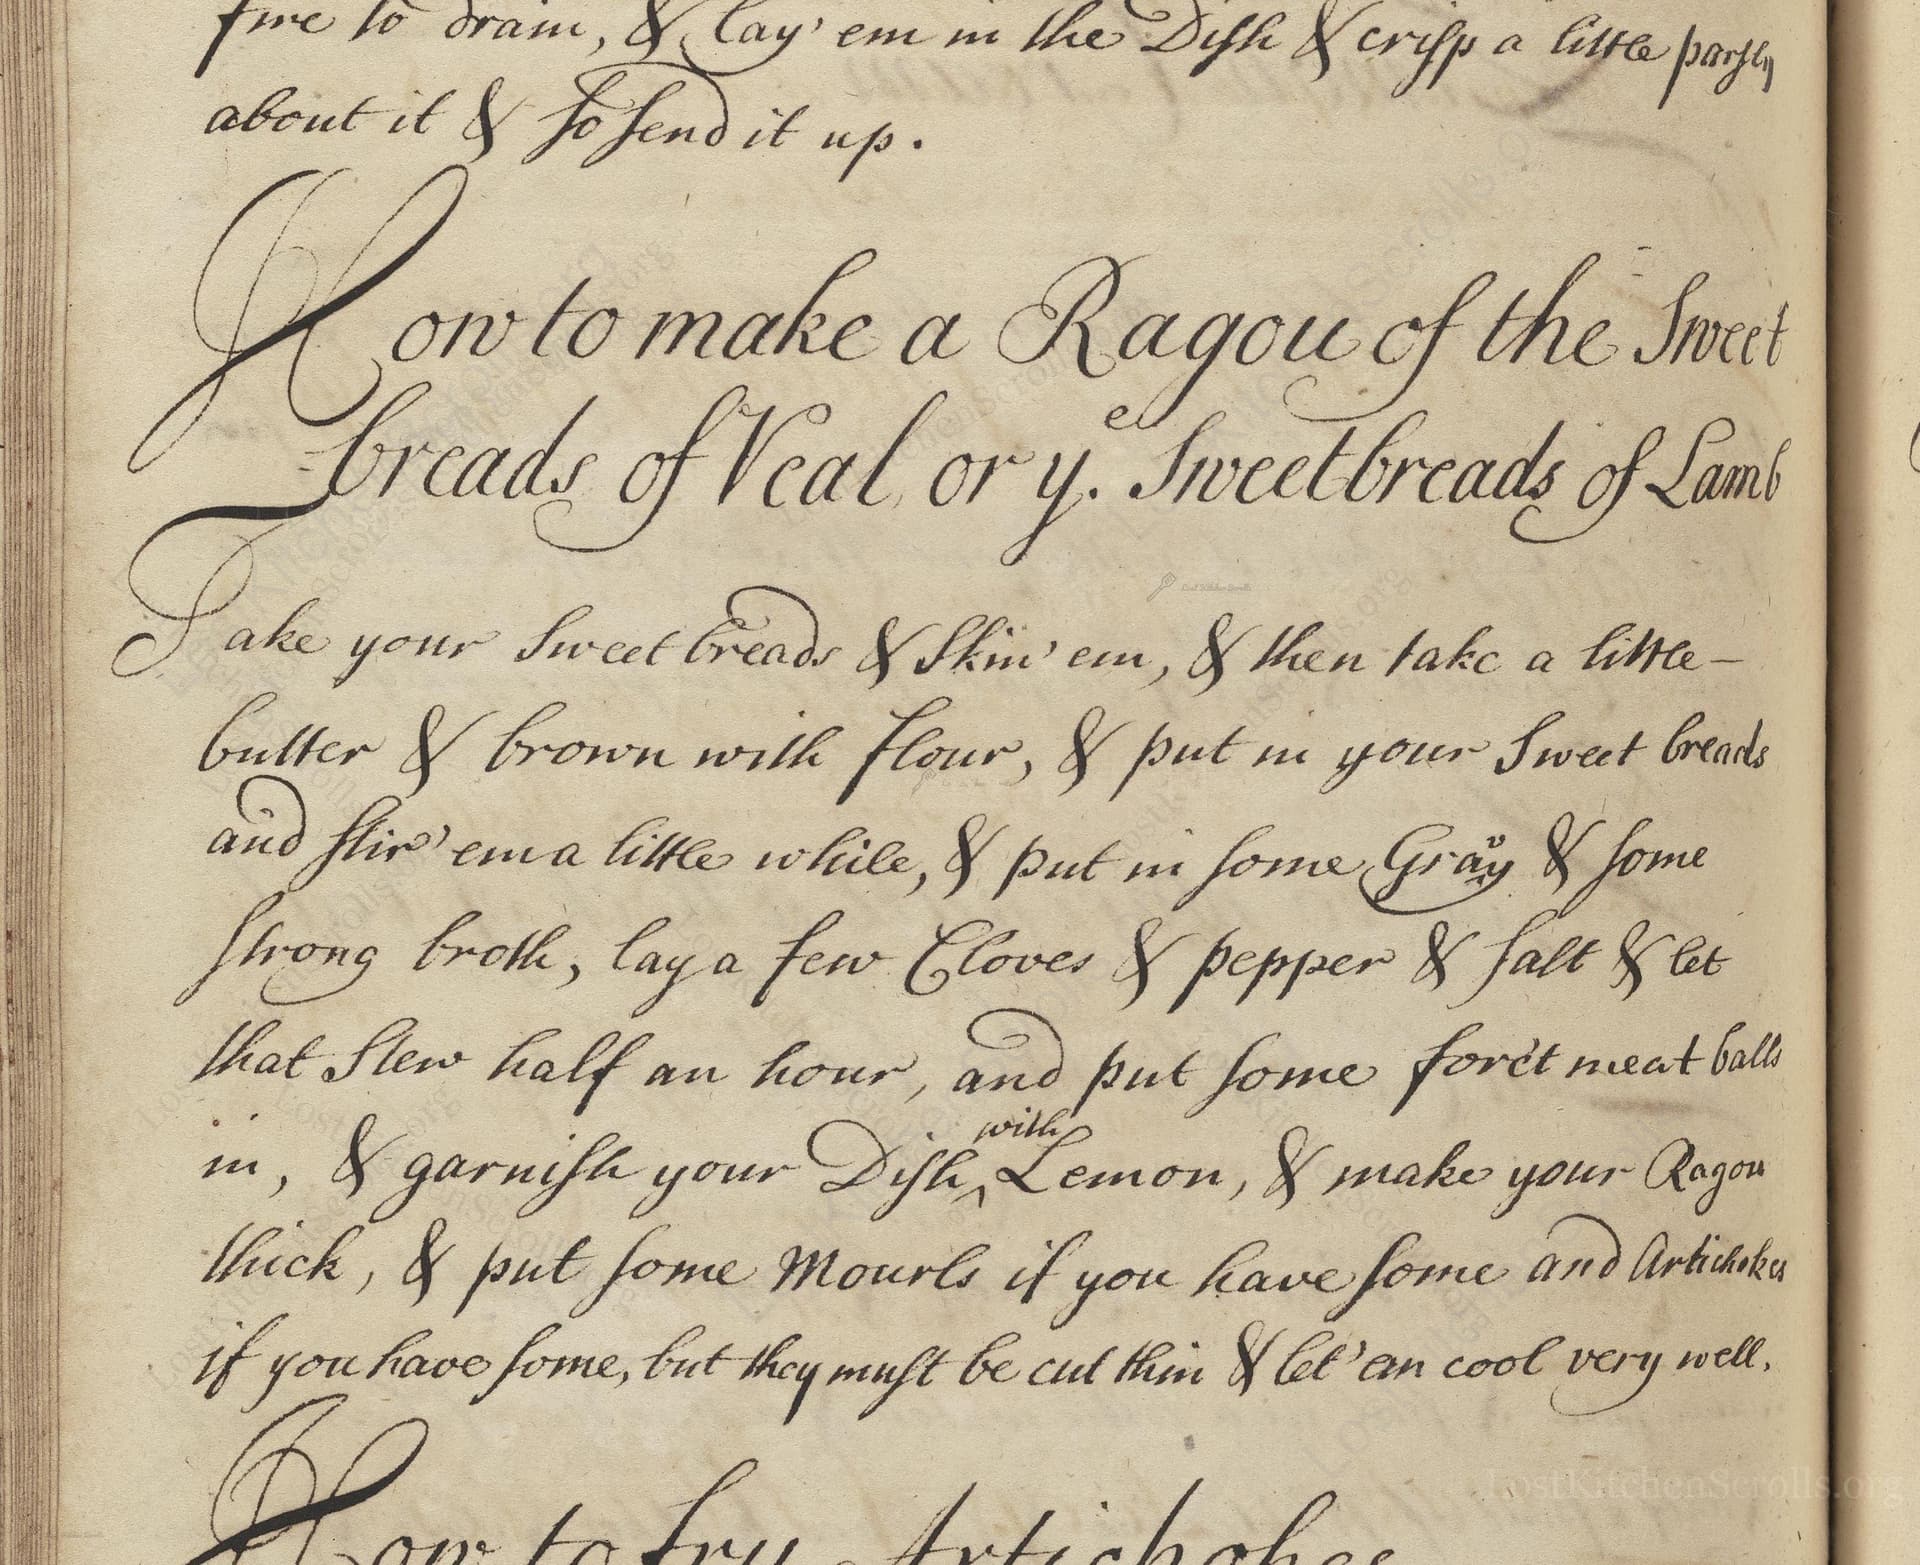 fire to drain, & lay' em in the Dish & crisp a little parsly
about it & so send it up.
How to make a Ragou of the Sweet
breads of Veal or yᵉ. Sweetbreads of Lamb
Take your Sweet breads & Skin' em, & then take a little-
butter & brown with flour, & put in your Sweet breads
and stir' em a little while, & put in some Gravy & some
strong broth, lay a few Cloves & pepper & salt & let
that Stew half an hour, and put some forc't meat balls
in, & garnish your Dish with Lemon, & make your Ragou
thick, & put some Mourls if you have some and Artichokes
if you have some, but they must be cut thin & let' em cool very well.
How to fry Artichokes
LostKitchenScrolls.org